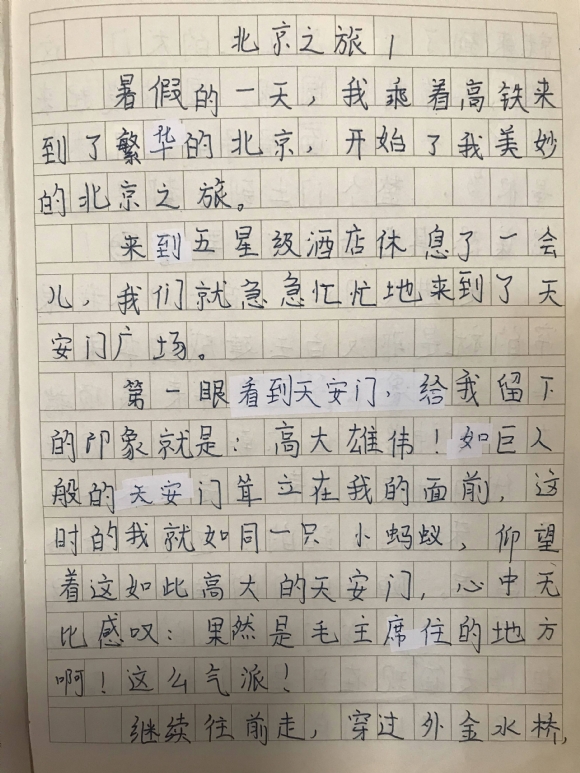 北京之旅1
暑假的一天，我乘着高铁来
到了繁华的北京，开始了我美妙
的北京之旅。
来到五星级酒店休息了一会
儿，我们就急急忙忙地来到了天
安门广场。
第一眼看到天安门，给我留下
的印象就是：高大雄伟！如巨人
般的天安门耸立在我的面前，这
时的我就如同一只小蚂蚁，仰望
着这如此高大的天安门，心中无
比感叹：果然是毛主席住的地方
啊！这么气派！
继续往前走，穿过外金水桥，